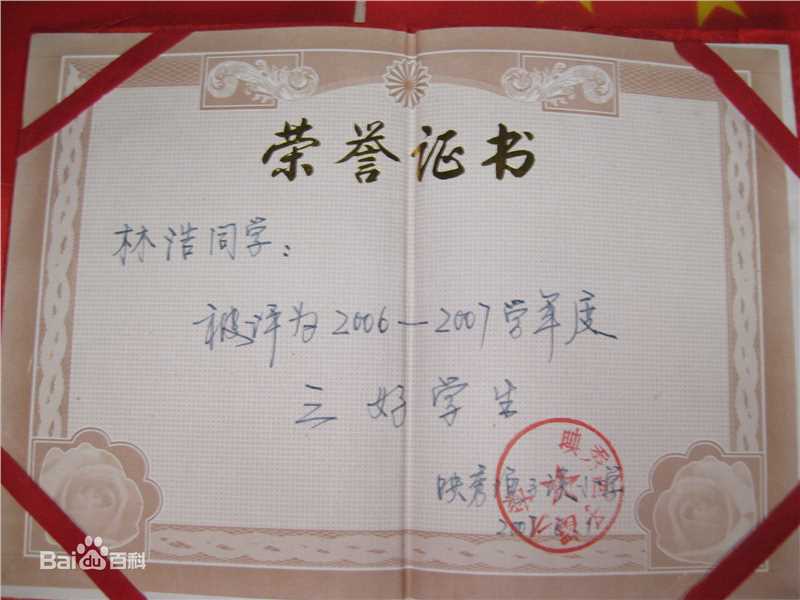 荣誉证书
林浩同学：
被评为2006—2007学年度
三好学生
映秀渔子溪小学
Baidu百科